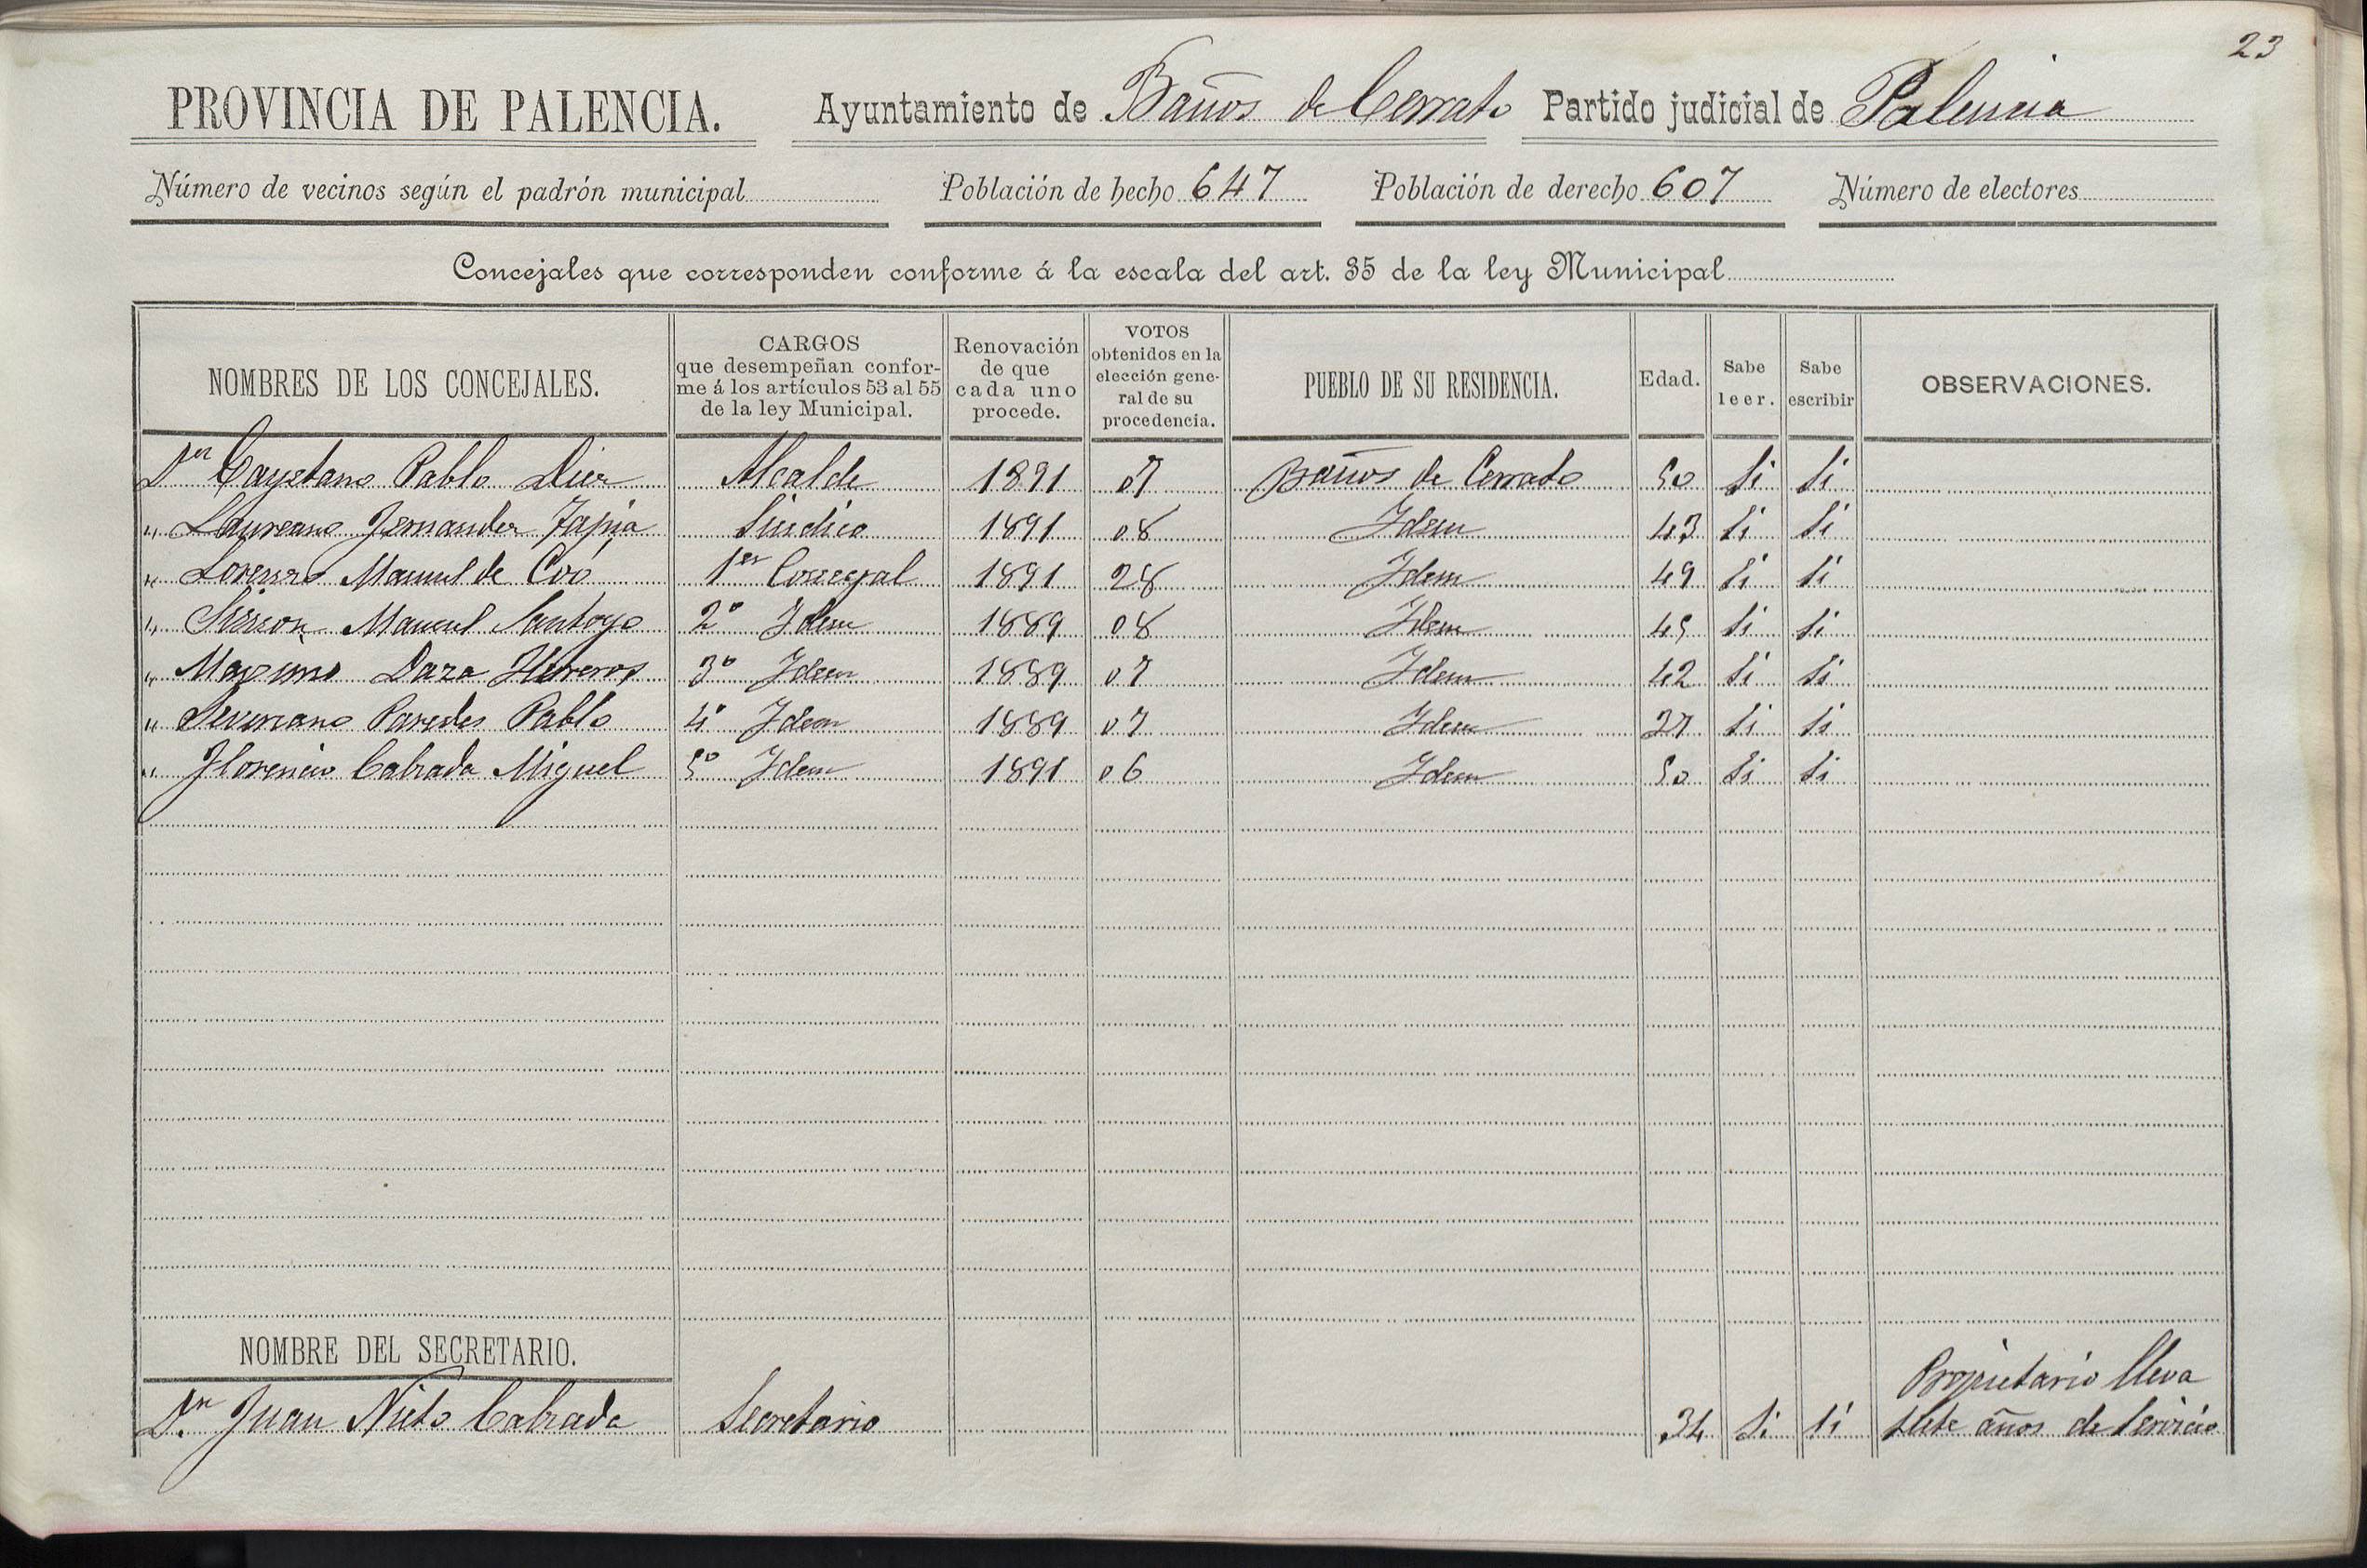 23
PROVINCIA DE PALENCIA. Ayuntamiento de Baños de Cerrato Partido judicial de Palencia
Número de vecinos según el padrón municipal Población de hecho 647 Población de derecho 607 Número de electores
Concejales que corresponden conforme á la escala del art. 35 de la ley Municipal
NOMBRES DE LOS CONCEJALES. CARGOS que desempeñan conforme á los artículos 53 al 55 de la ley Municipal. Renovación de que cada uno procede. VOTOS obtenidos en la elección general de su procedencia. PUEBLO DE SU RESIDENCIA. Edad. Sabe leer. Sabe escribir OBSERVACIONES.
Dn Cayetano Pablo Diez Alcalde 1891 07 Baños de Cerrato 50 Si Si
" Laureano Fernandez Tapia Sindico 1891 08 Idem 43 Si Si
" Lorenzo Manuel de Coó 1er Concejal 1891 28 Idem 49 Si Si
" Manuel Santoyo 2º Idem 1889 08 Idem 45 Si Si
" Maximo Daza Herreros 3º Idem 1889 07 Idem 42 Si Si
" Severiano Paredes Pablo 4º Idem 1889 07 Idem 27 Si Si
" Florencio Calzada Miguel 5º Idem 1891 06 Idem 50 Si Si
NOMBRE DEL SECRETARIO.
Dn Juan Nieto Calzada Secretario 34 Si Si Propietario lleva
siete años de servicio